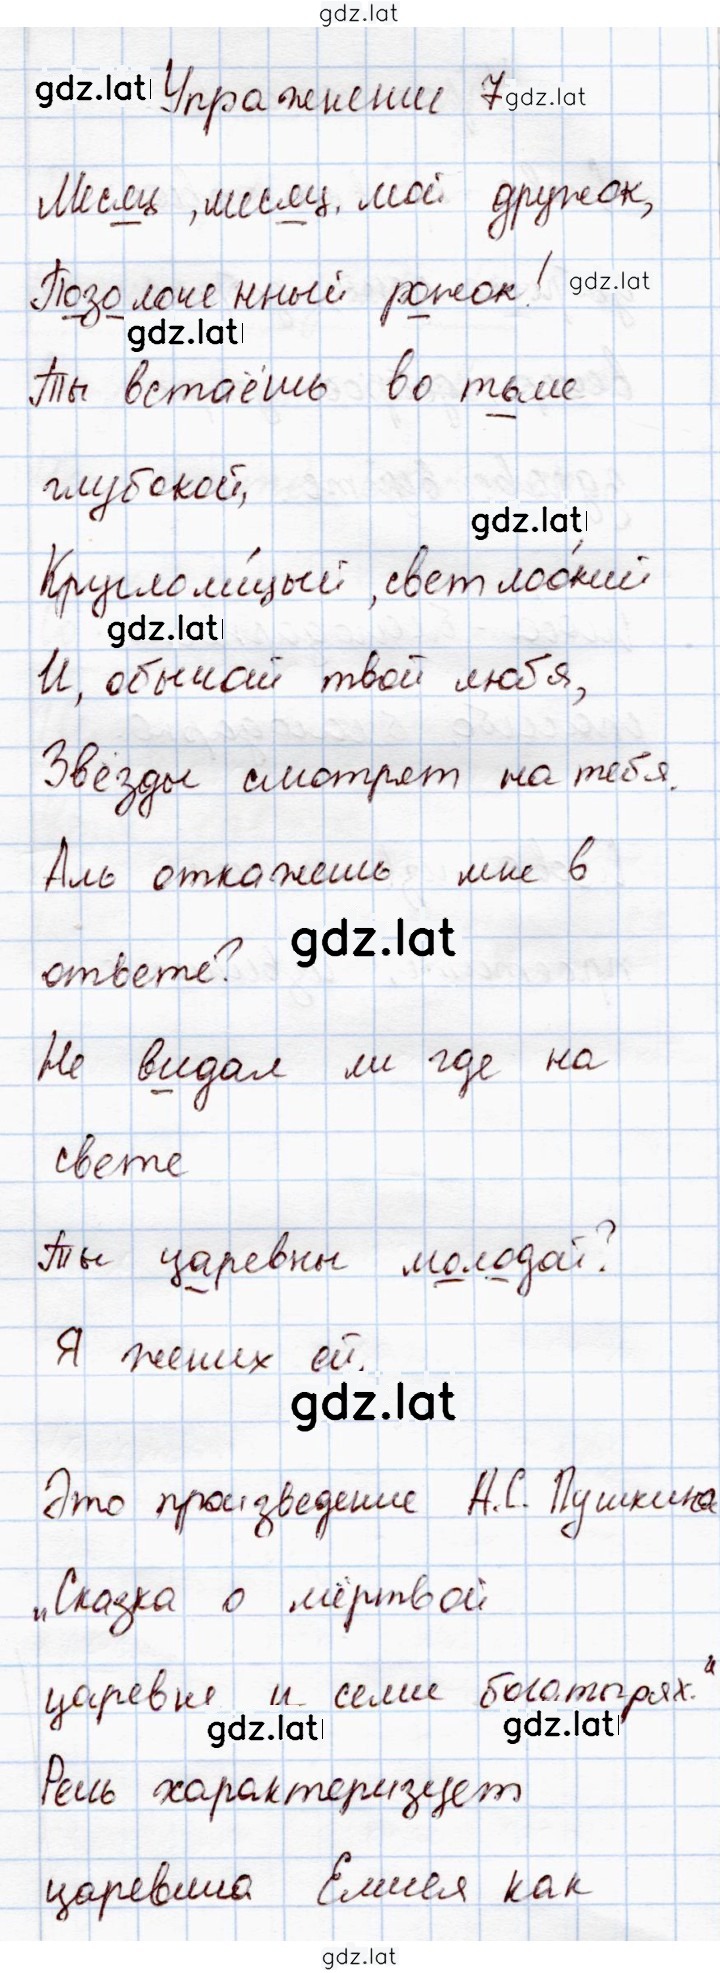 gdz.lat
gdz.lat Упражнение 7 gdz.lat
Месяц, месяц, мой дружок,
Позолоченный рожок! gdz.lat
gdz.lat
Ты встаёшь во тьме
глубокой,
gdz.lat
Круглоли́цый, светлоо́кий
gdz.lat
И, обычай твой любя,
Звёзды смотрят на тебя.
Аль откажешь мне в
gdz.lat
ответе?
Не видал ли где на
свете
Ты царевны молодой?
Я жених ей.
gdz.lat
Это произведение А.С. Пушкина
„Сказка о мёртвой
царевне и семи богатырях.“
gdz.lat gdz.lat
Речь характеризует
царевича Елисея как
gdz.lat